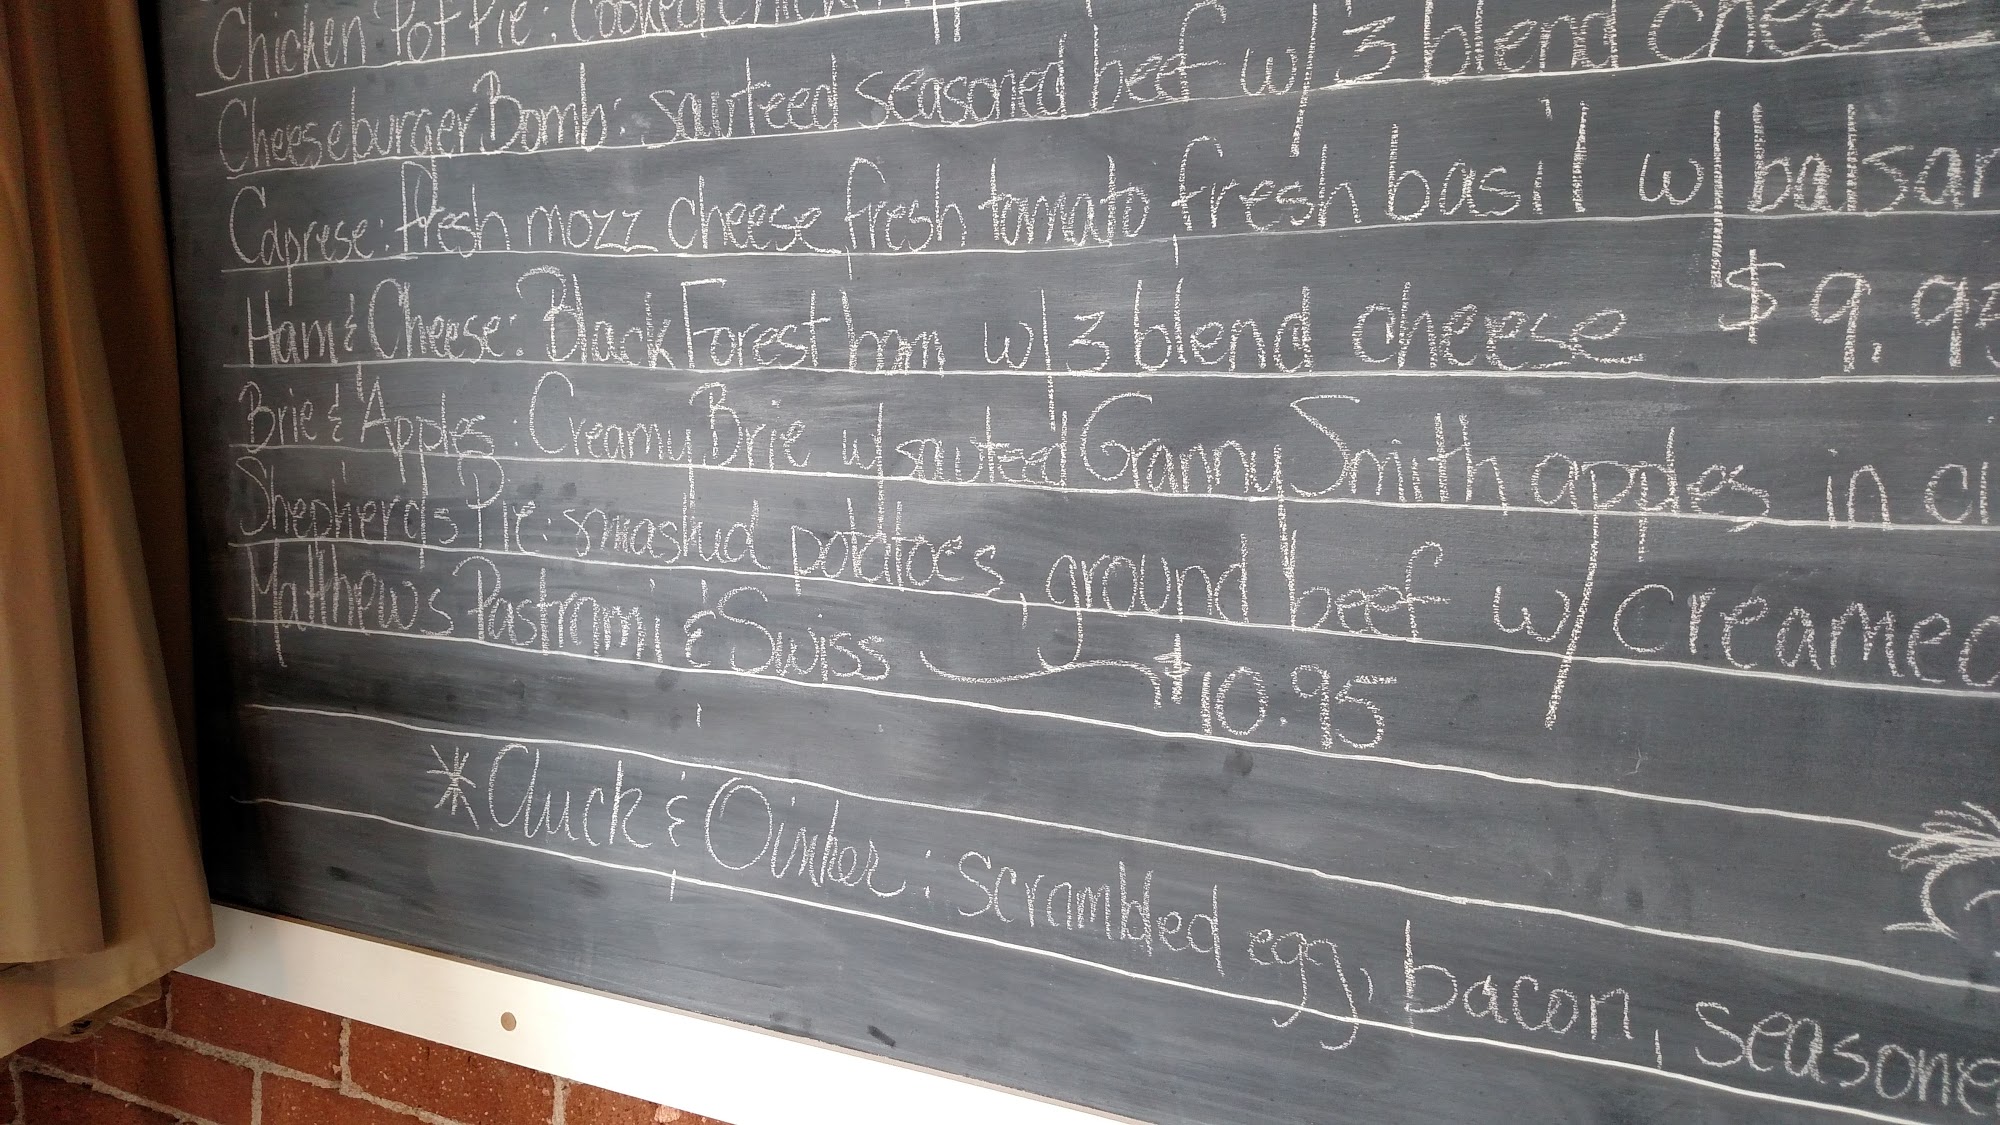 Chicken Pot Pie: cooked
Cheeseburger Bomb: sauteed seasoned beef w/ 3 blend cheese
Caprese: fresh mozz cheese, fresh tomato, fresh basil w/ balsam
Ham & Cheese: Black Forest ham w/ 3 blend cheese $9.95
Brie & Apples: Creamy Brie w/ sauteed Granny Smith apples in ci
Shepherd's Pie: smashed potatoes, ground beef w/ creamed
Matthew's Pastrami & Swiss $10.95
* Cluck & Oinker: scrambled egg, bacon, seasone